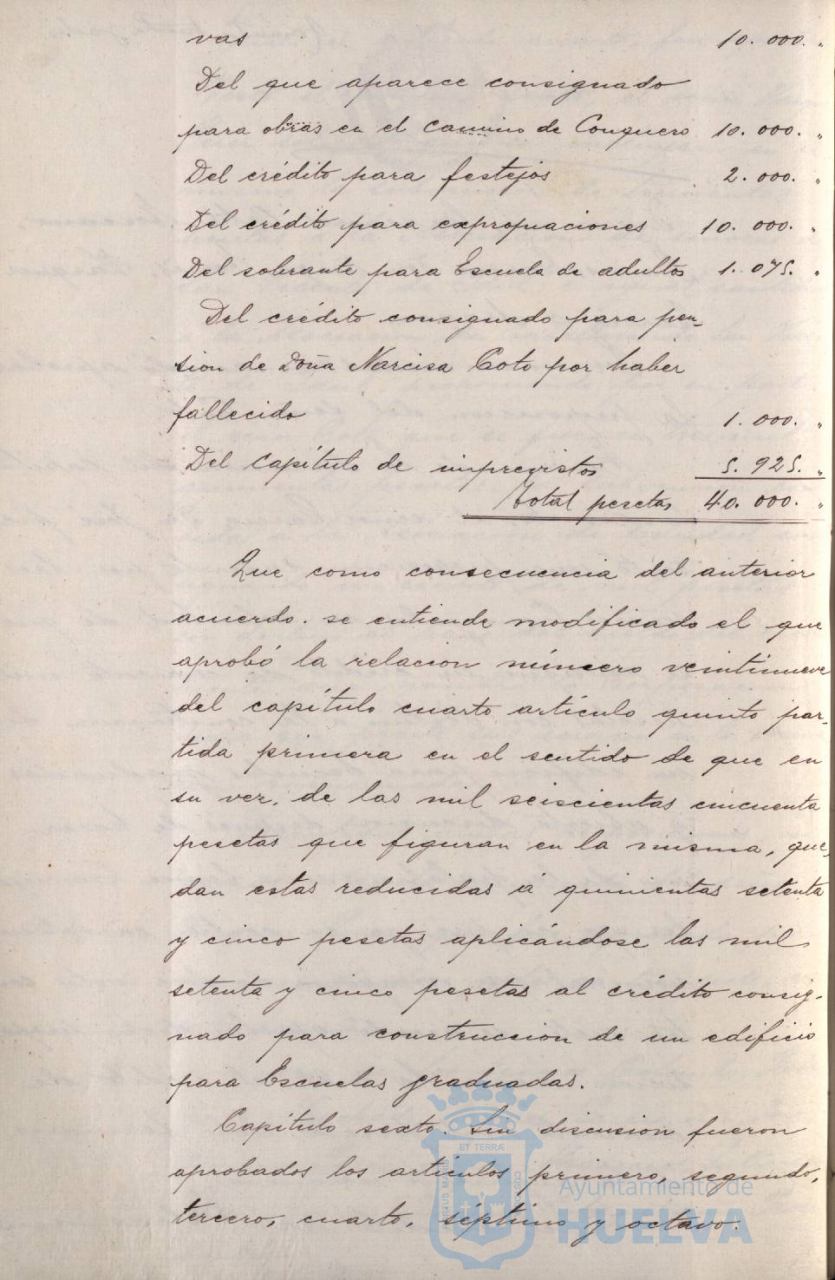 vas 10.000. "
Del que aparece consignado
para obras en el camino de Conquero 10.000. "
Del crédito para festejos 2.000. "
Del crédito para expropiaciones 10.000. "
Del sobrante para Escuela de adultos 1.075. "
Del crédito consignado para pen-
sion de Doña Narcisa Coto por haber
fallecido 1.000. "
Del Capítulo de imprevistos 5.925. "
Total pesetas 40.000. "
Que como consecuencia del anterior
acuerdo. se entiende modificado el que
aprobó la relacion número veintinueve
del capítulo cuarto artículo quinto par-
tida primera en el sentido de que en
su vez, de las mil seiscientas cincuenta
pesetas que figuran en la misma, que-
dan estas reducidas á quinientas setenta
y cinco pesetas aplicándose las mil
setenta y cinco pesetas al crédito consig-
nado para construccion de un edificio
para Escuelas graduadas.
Capítulo sexto. Sin discusion fueron
aprobados los articulos primero, segundo,
tercero, cuarto, séptimo y octavo.
ET TERRÆ
Ayuntamiento de
HUELVA